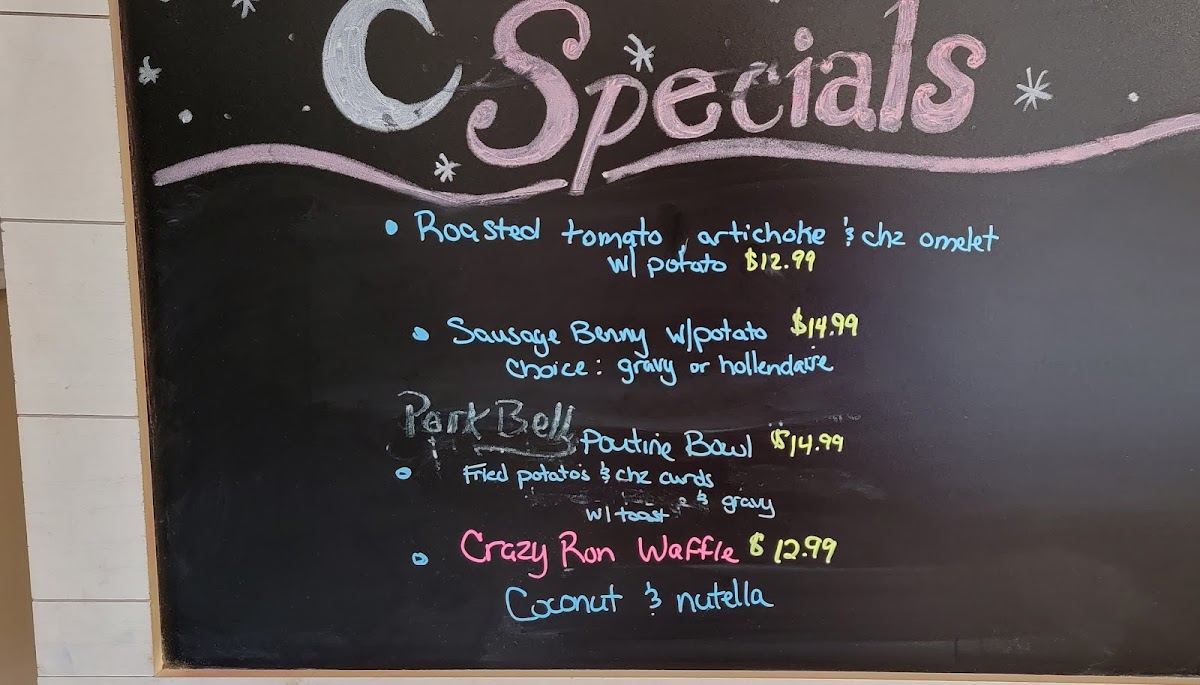 Specials
• Roasted tomato, artichoke & chz omelet
w/ potato $12.99
• Sausage Benny w/potato $14.99
choice: gravy or hollendaire
Pork Bell Poutine Bowl $14.99
• Fried potato's & chz curds
& gravy
w/ toast
• Crazy Ron Waffle $12.99
Coconut & nutella